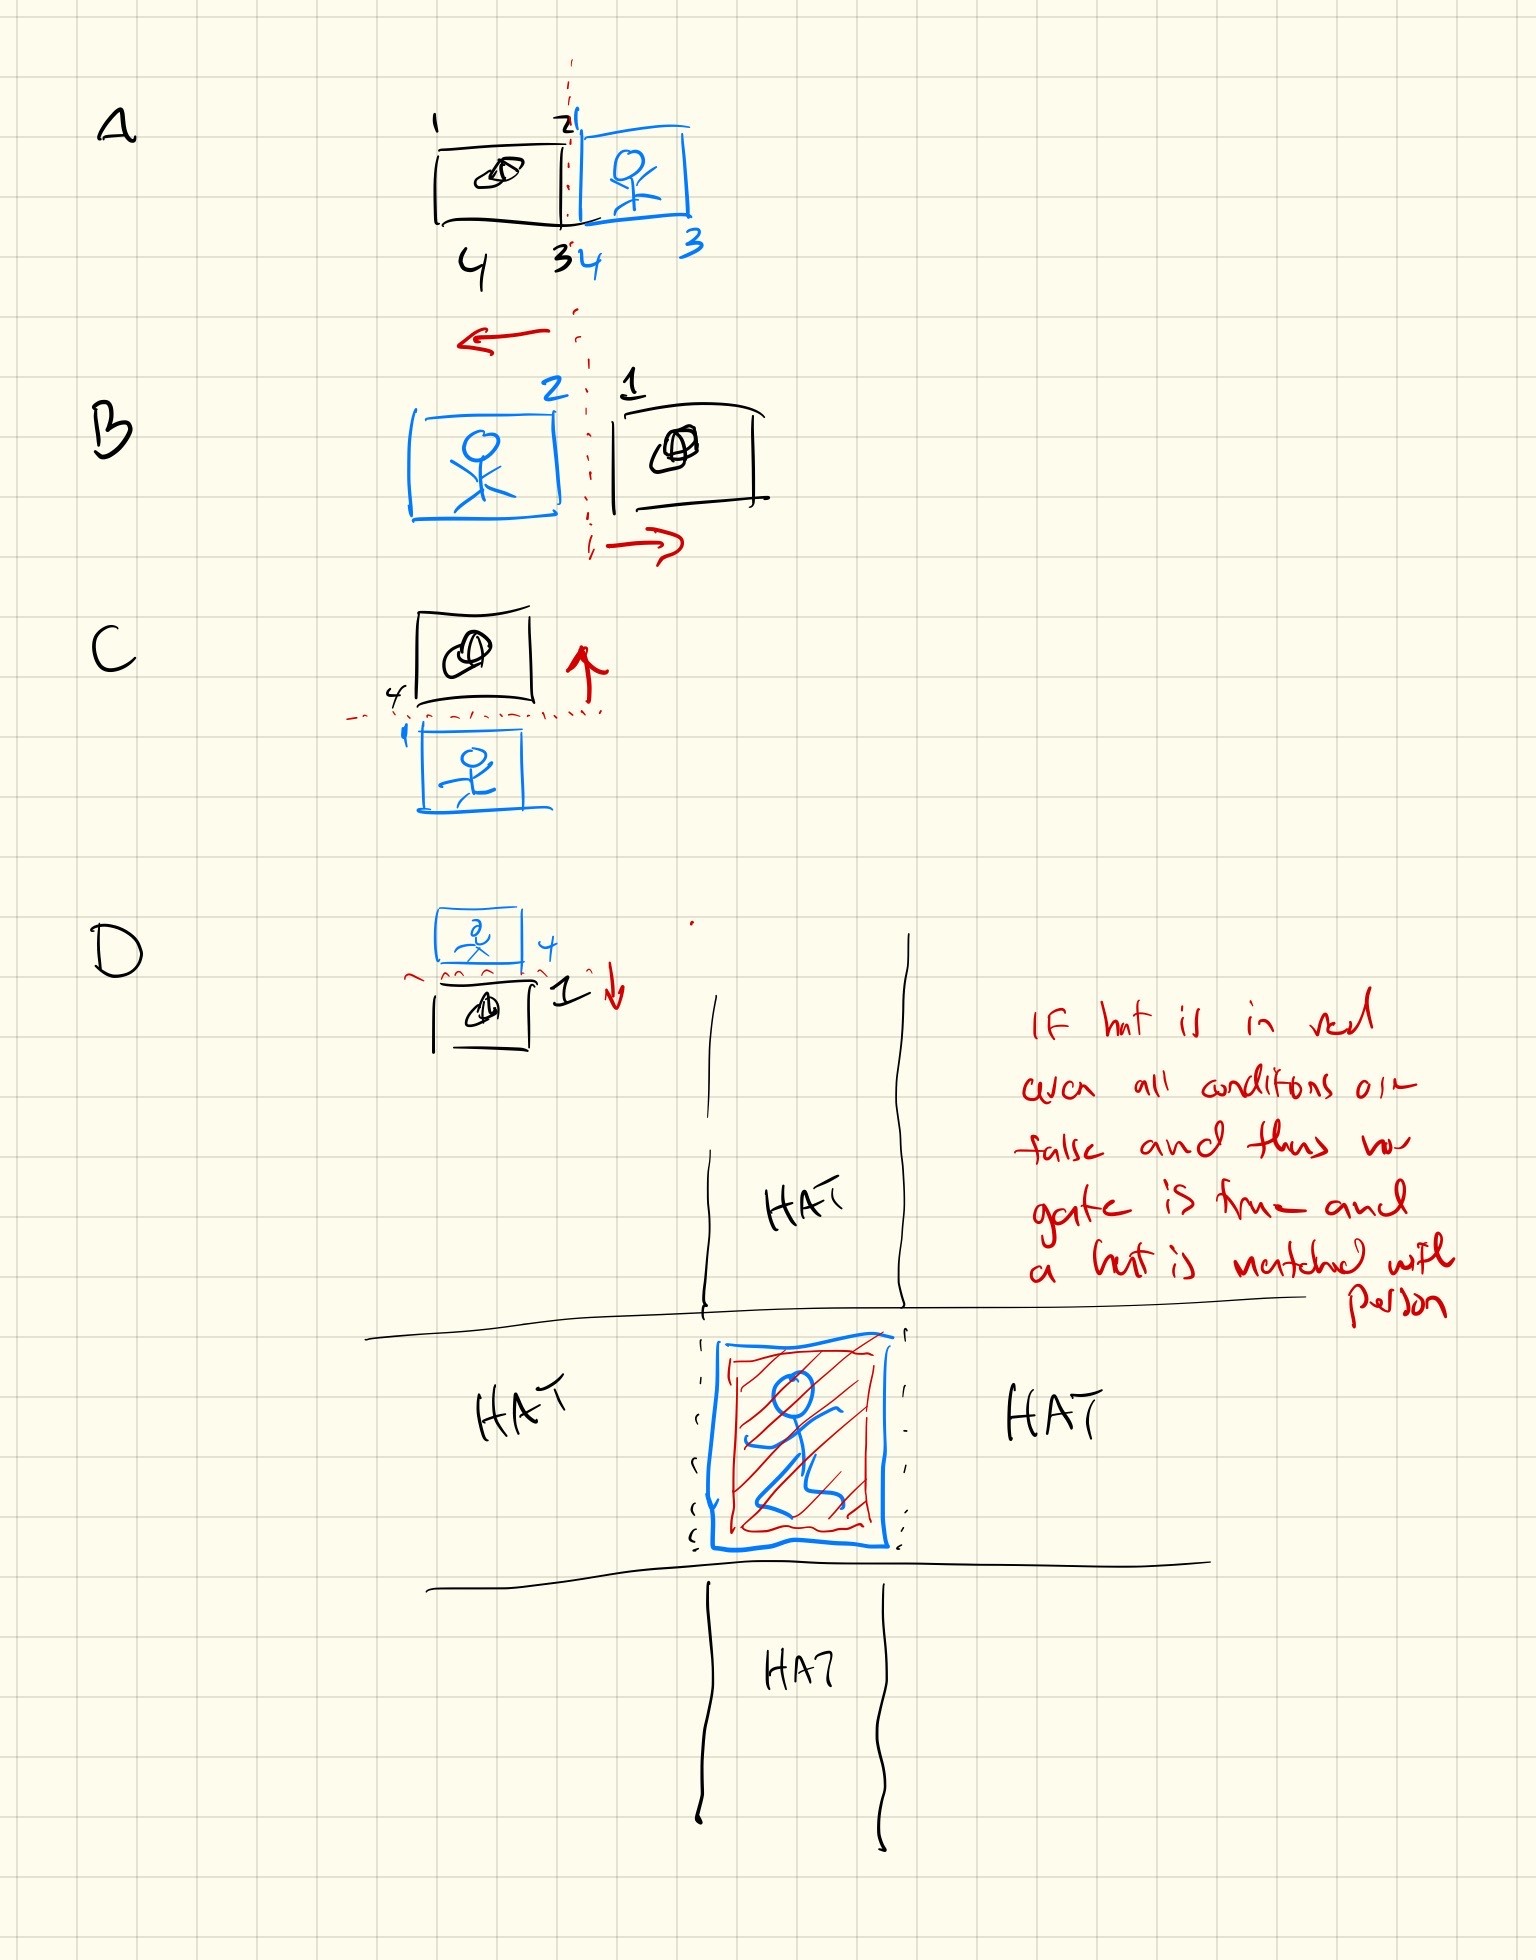 A
1 2 1
4 3 4 3
B
2 1
C
4
1
D
4
1
IF hat is in red
all conditions are
false and thus no
gate is true and
a hat is matched with
person
HAT
HAT
HAT
HAT